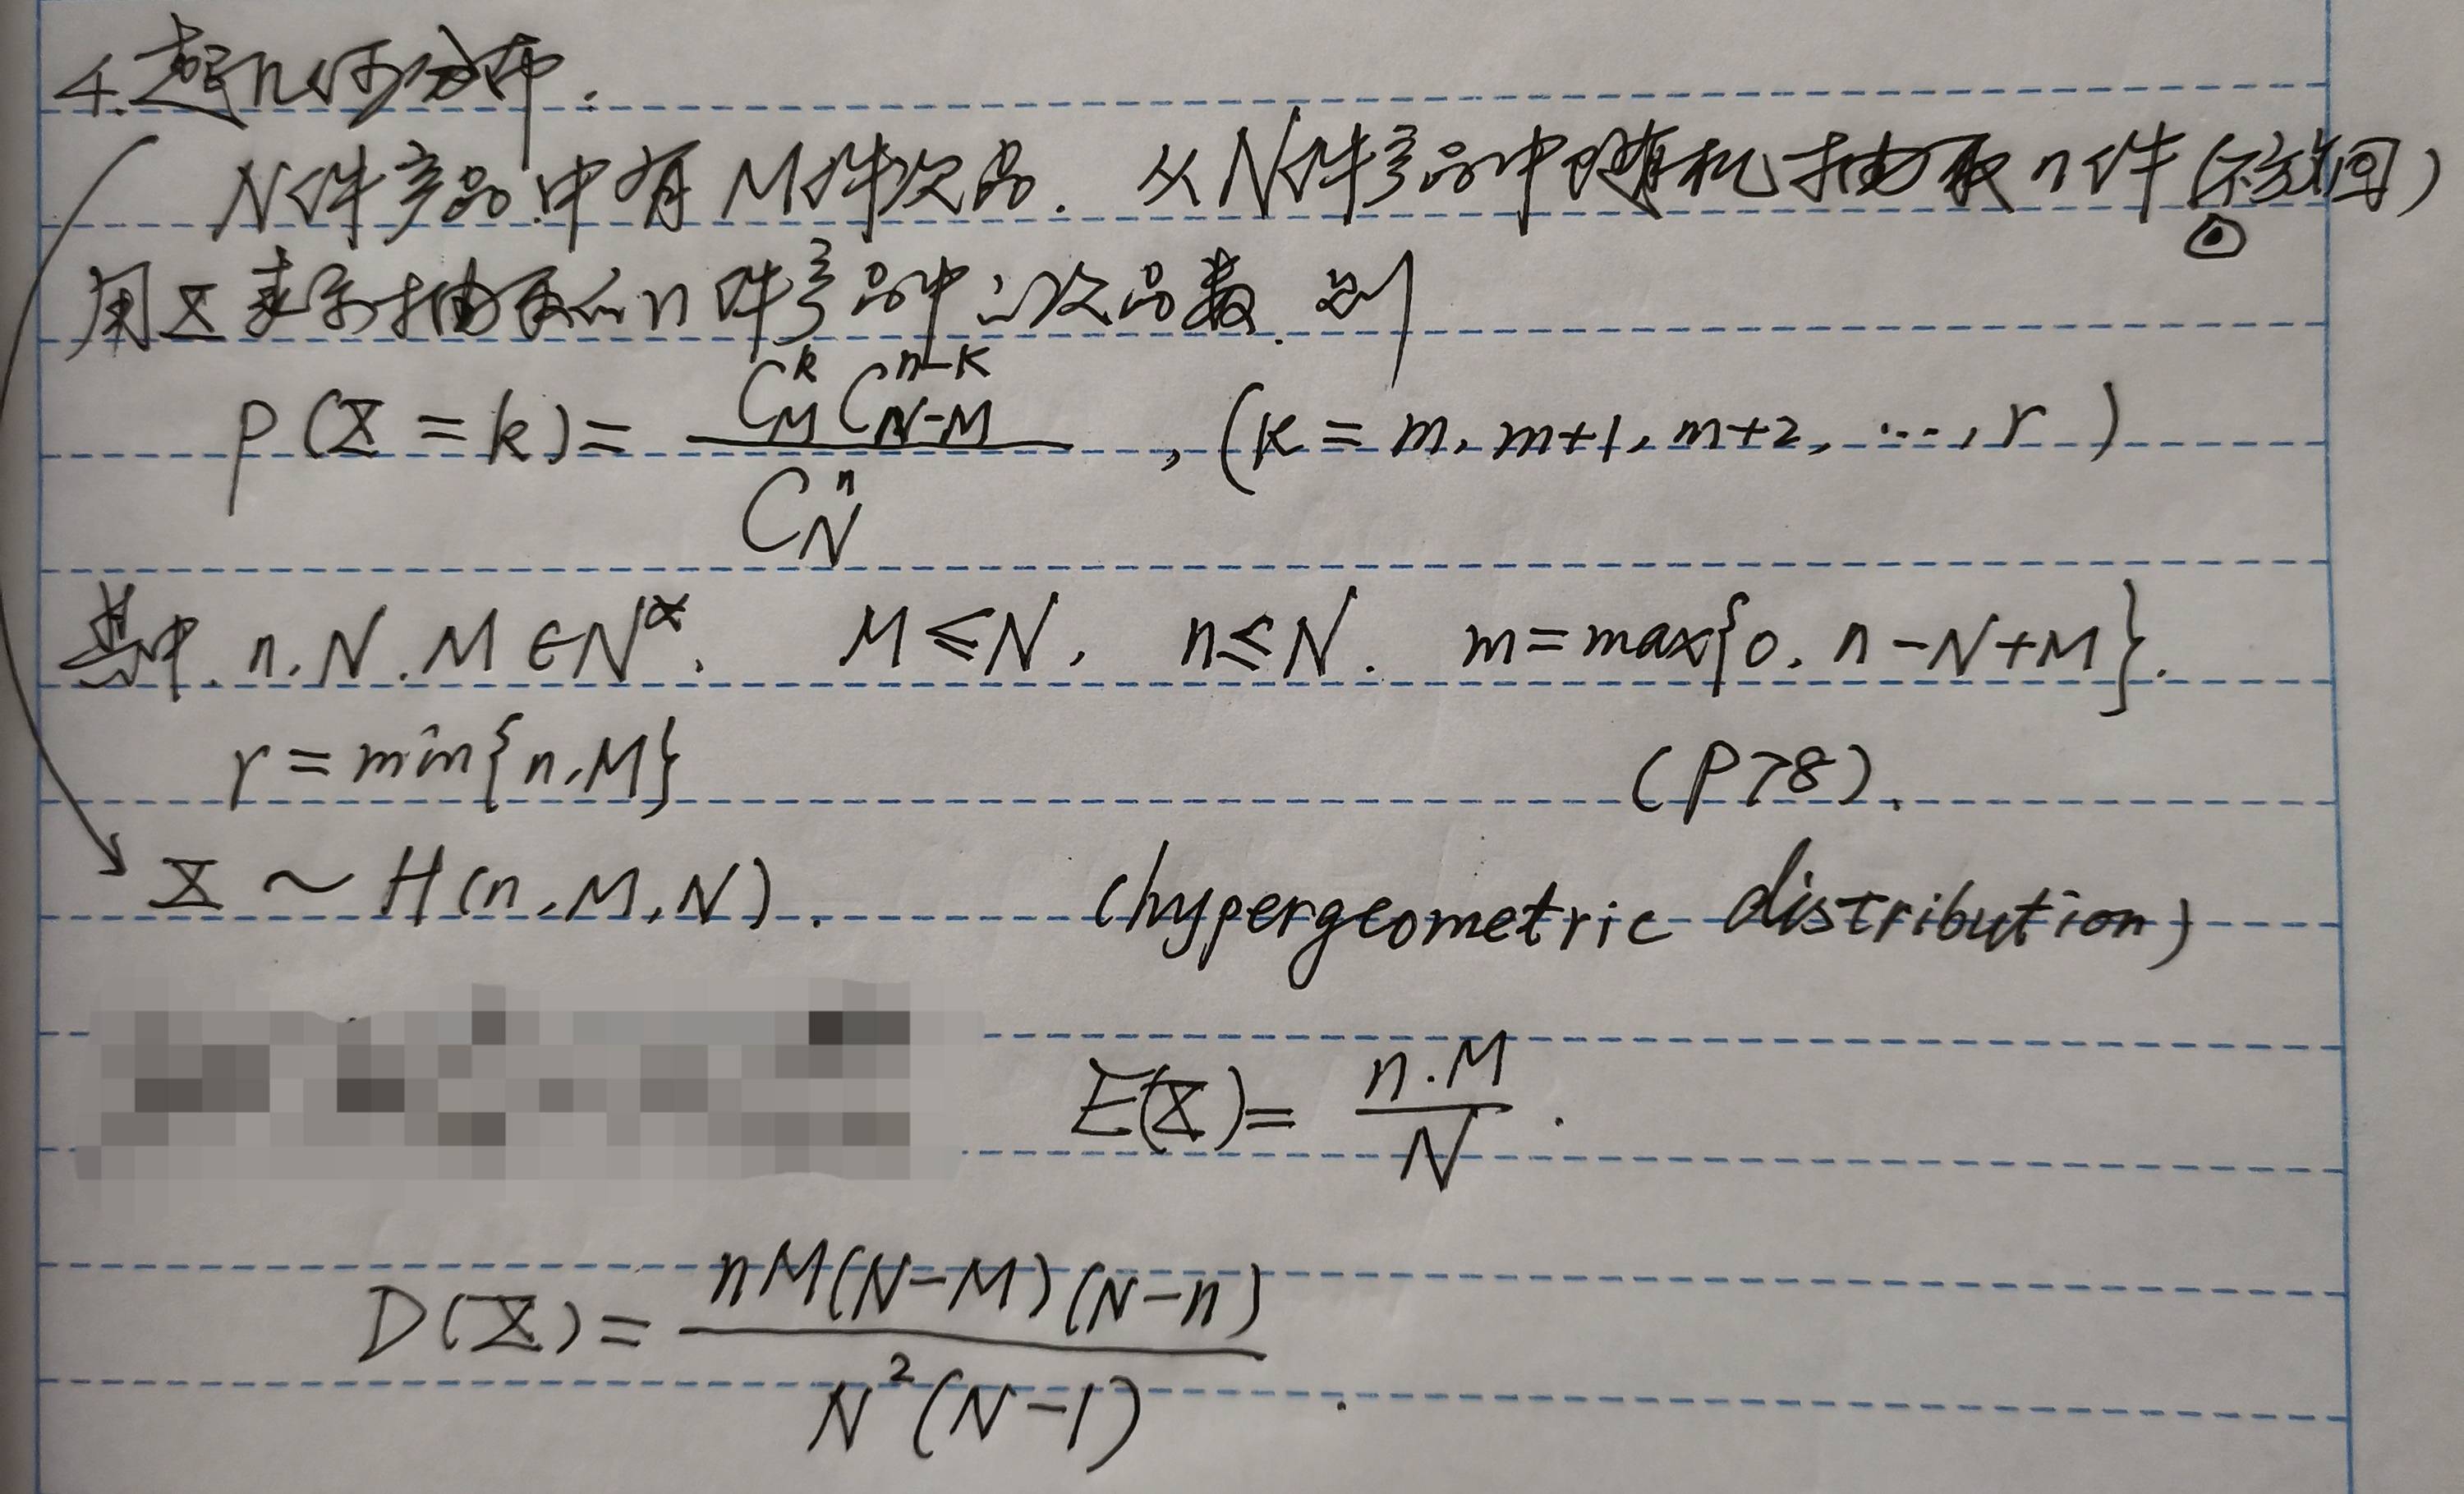 4.超几何分布:
N件产品中有M件次品. 从N件产品中随机抽取n件(不放回)
用X表示抽取的n件产品中的次品数. 则
P(X=k)= C_M^k C_{N-M}^{n-k} / C_N^n , (k=m, m+1, m+2, ..., r)
其中. n, N, M∈N*. M≤N, n≤N. m=max{0, n-N+M}.
r=min{n, M} (P78).
X ~ H(n, M, N). (hypergeometric distribution)
E(X)= n·M / N .
D(X)= nM(N-M)(N-n) / N²(N-1) .